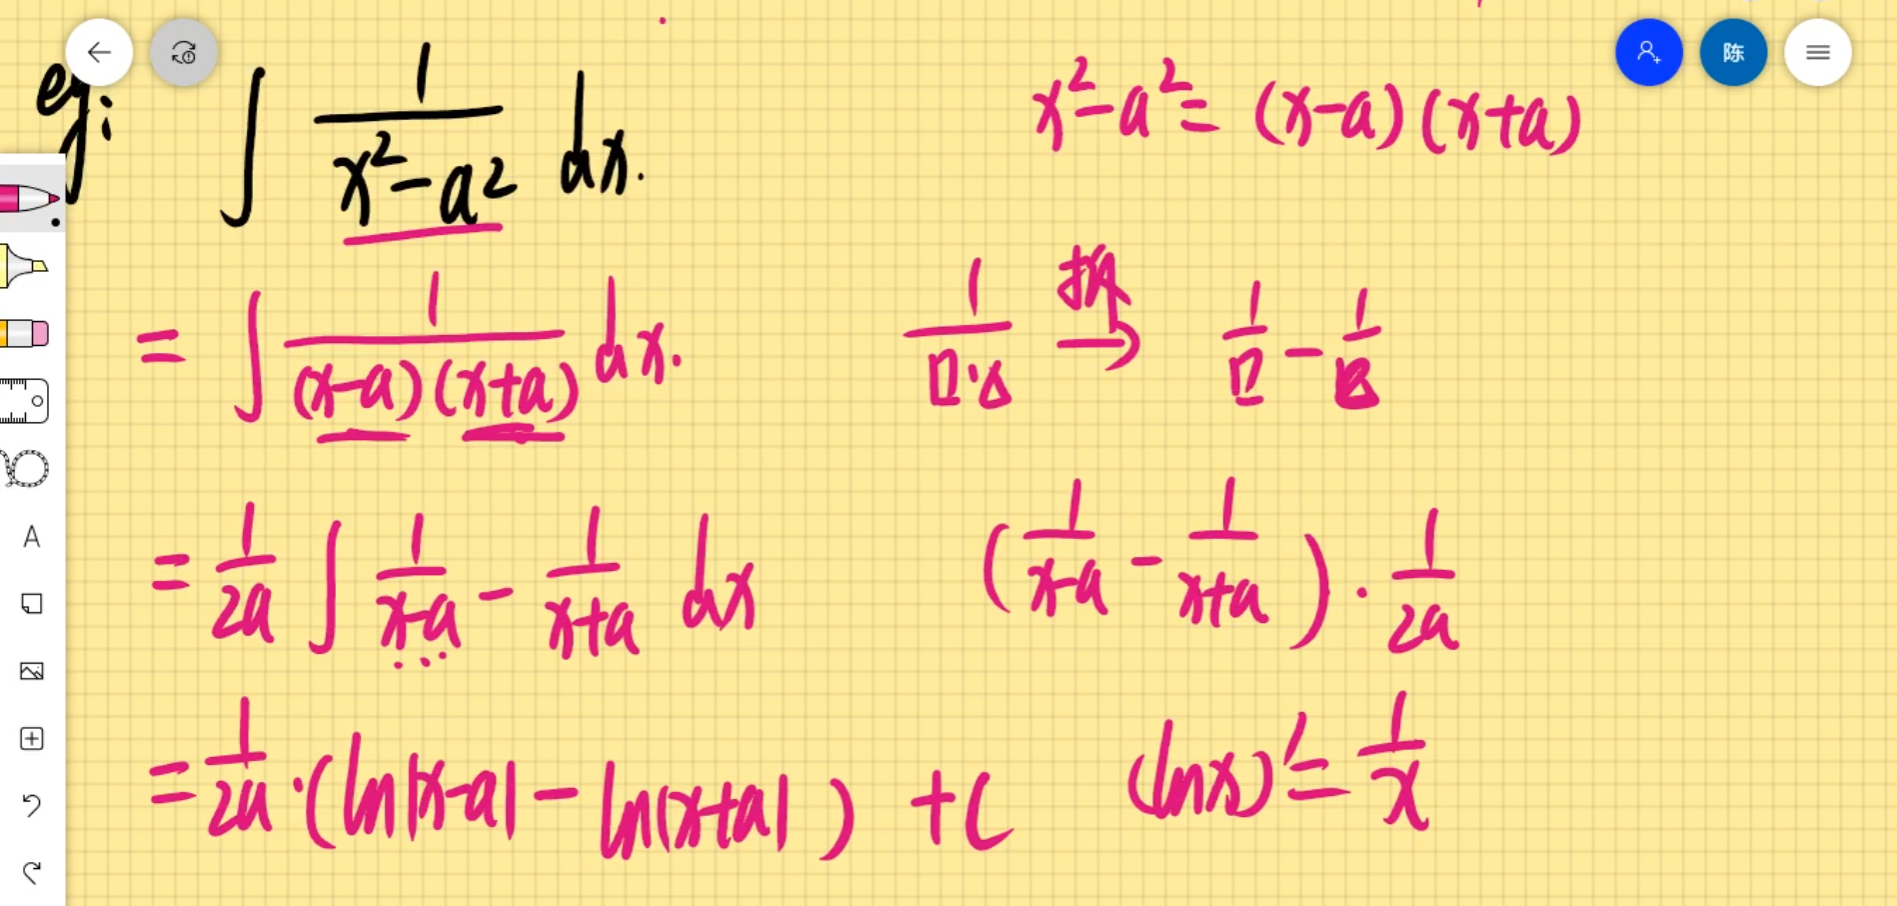 eg: ∫ 1/(x²-a²) dx.
x²-a² = (x-a)(x+a)
= ∫ 1/((x-a)(x+a)) dx.
1/(□·△) 拆→ 1/□ - 1/△
= 1/2a ∫ 1/(x-a) - 1/(x+a) dx
(1/(x-a) - 1/(x+a)) · 1/2a
= 1/2a · (ln|x-a| - ln|x+a|) + C
(lnx)' = 1/x
陈
A